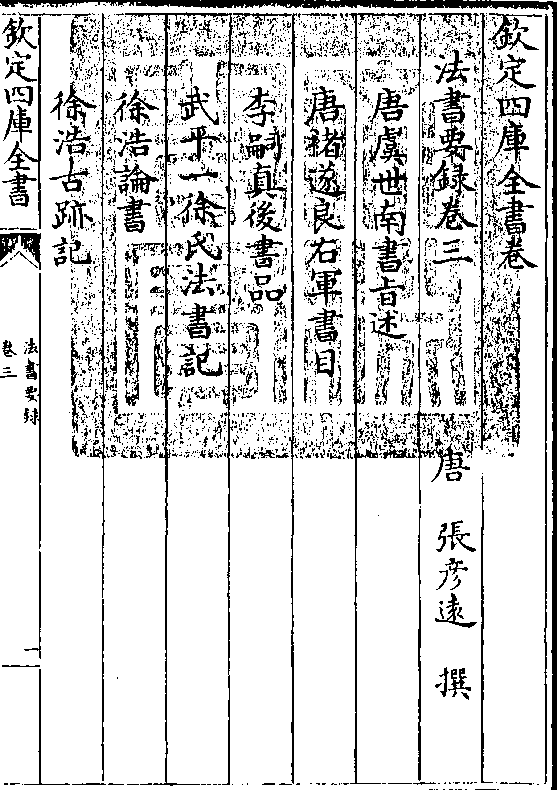 欽定四庫全書卷
法書要録卷三
唐 張彦逺 撰
唐虞世南書旨述
唐褚遂良右軍書目
李嗣真後書品
武平一徐氏法書記
徐浩論書
徐浩古跡記
欽定四庫全書
法書要録
卷三
一